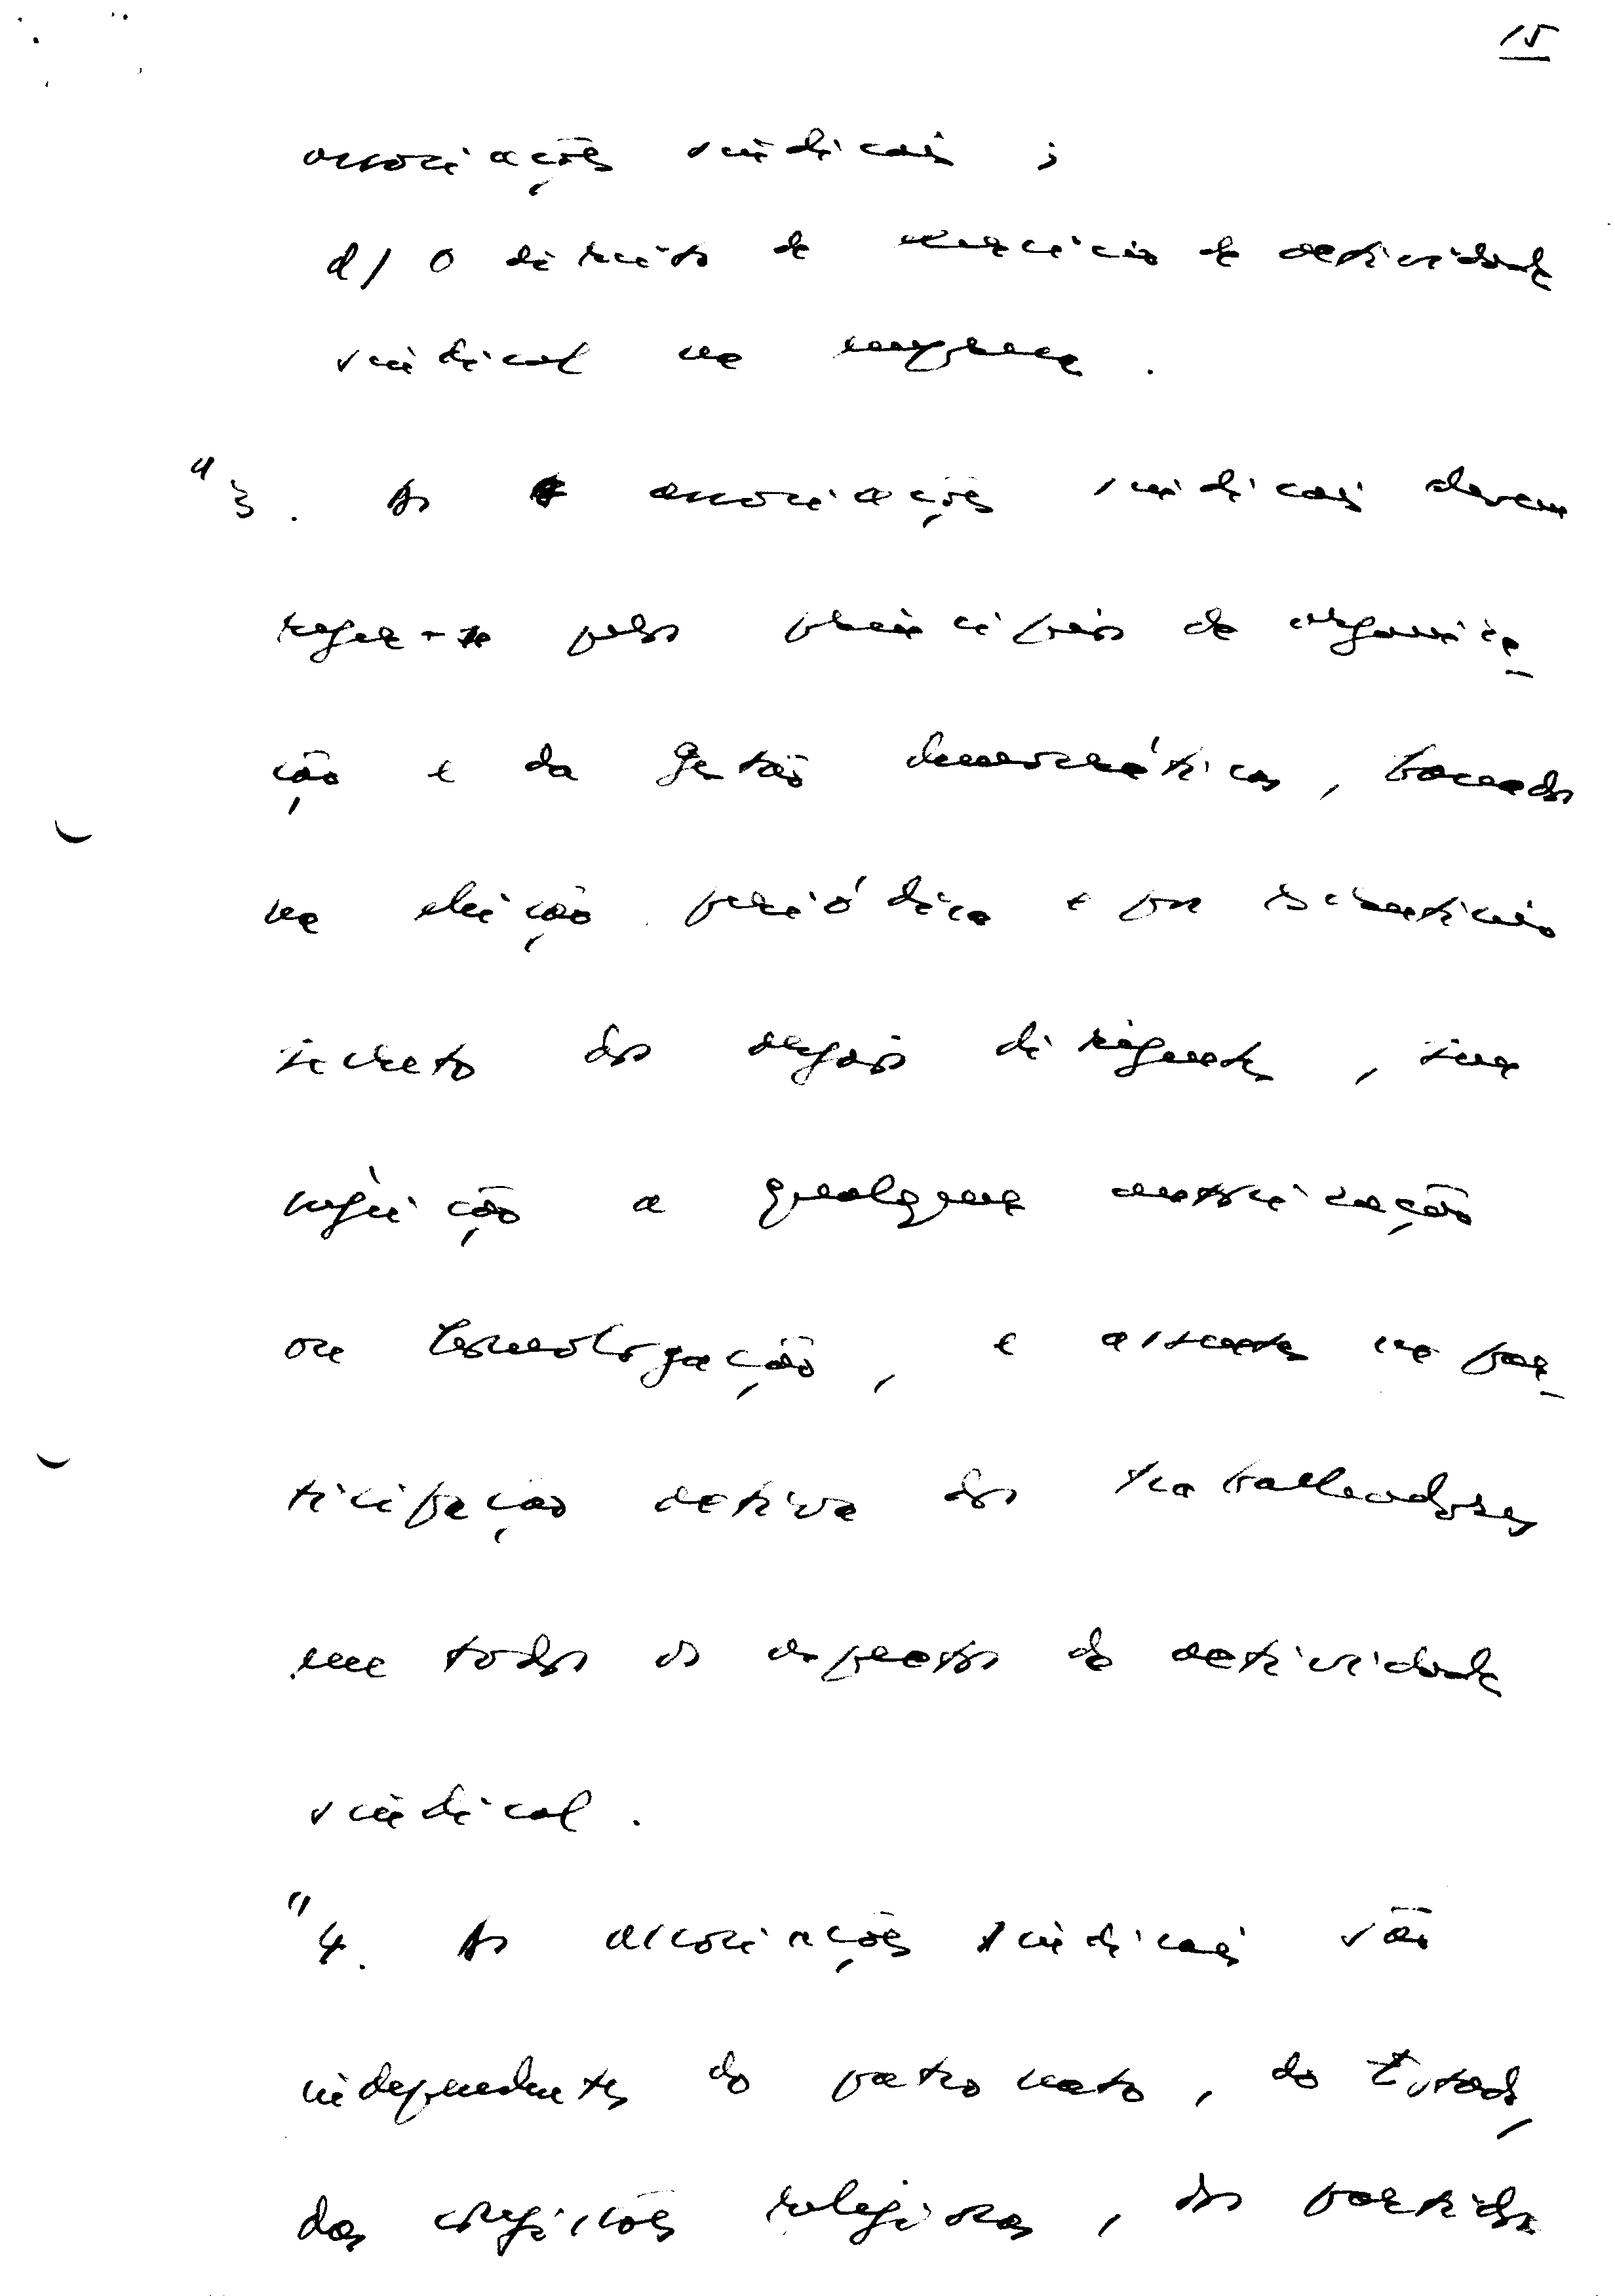 15
associações sindicais ;
d) O direito de exercício de actividade
sindical na empresa .
"3. As associações sindicais devem
reger-se pelos princípios da organiza-
ção e da gestão democráticas, baseados
na eleição periódica e por escrutínio
secreto dos órgãos dirigentes, sem
sujeição a qualquer autorização
ou homologação, e assentes na par-
ticipação activa dos trabalhadores
em todos os aspectos da actividade
sindical .
"4. As associações sindicais são
independentes do patronato, do Estado,
das confissões religiosas, dos partidos